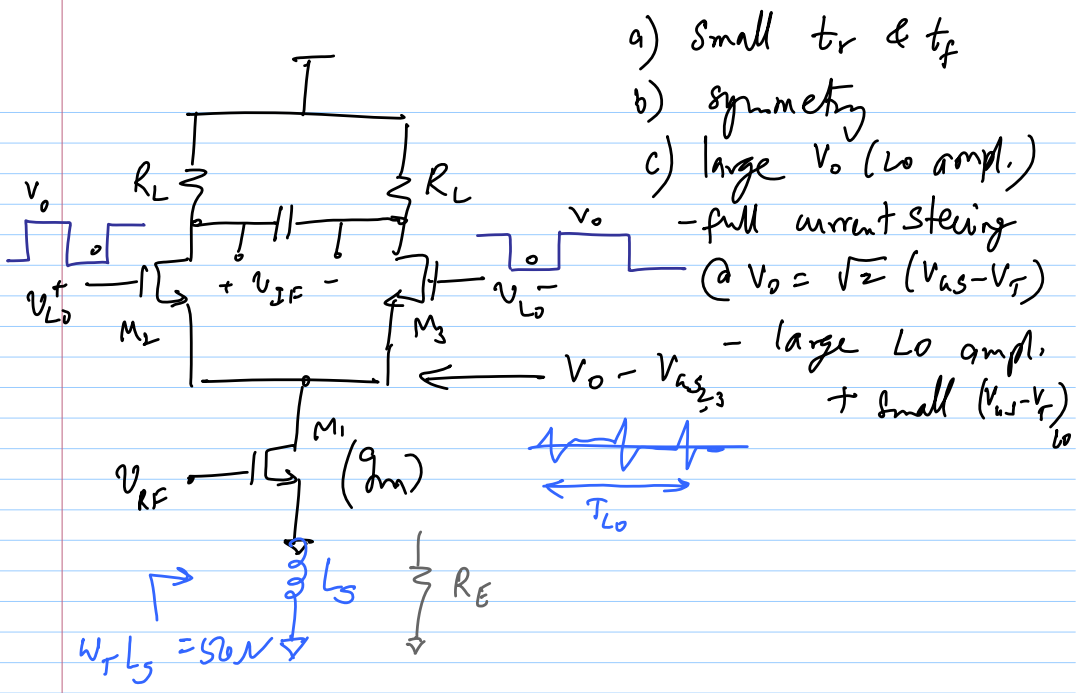 a) Small tr & tf
b) symmetry
c) large Vo (LO ampl.)
- full current steering
@ Vo = √2 (VGS-VT)
- large LO ampl.
+ small (VGS-VT)LO
RL
RL
Vo
o
Vo
o
VLO+
+ VIF -
VLO-
M2
M3
Vo - VGS2,3
M1
(gm)
VRF
TLO
LS
RE
ωT LS = 50Ω